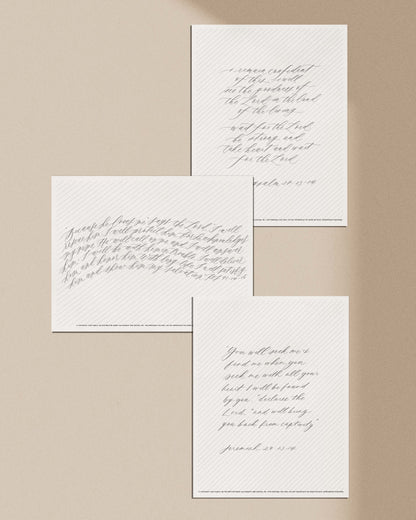 I remain confident
of this: I will
see the goodness of
the Lord in the land
of the living.
wait for the Lord;
be strong and
take heart and wait
for the Lord
psalm 27 13-14
"Because he loves me," says the Lord, "I will
rescue him; I will protect him, for he acknowledges
my name. He will call on me, and I will answer
him; I will be with him in trouble, I will deliver
him and honor him. With long life I will satisfy
him and show him my salvation."
"You will seek me &
find me when you
seek me with all your
heart. I will be found
by you," declares the
Lord, "and will bring
you back from captivity"
Jeremiah 29 13-14